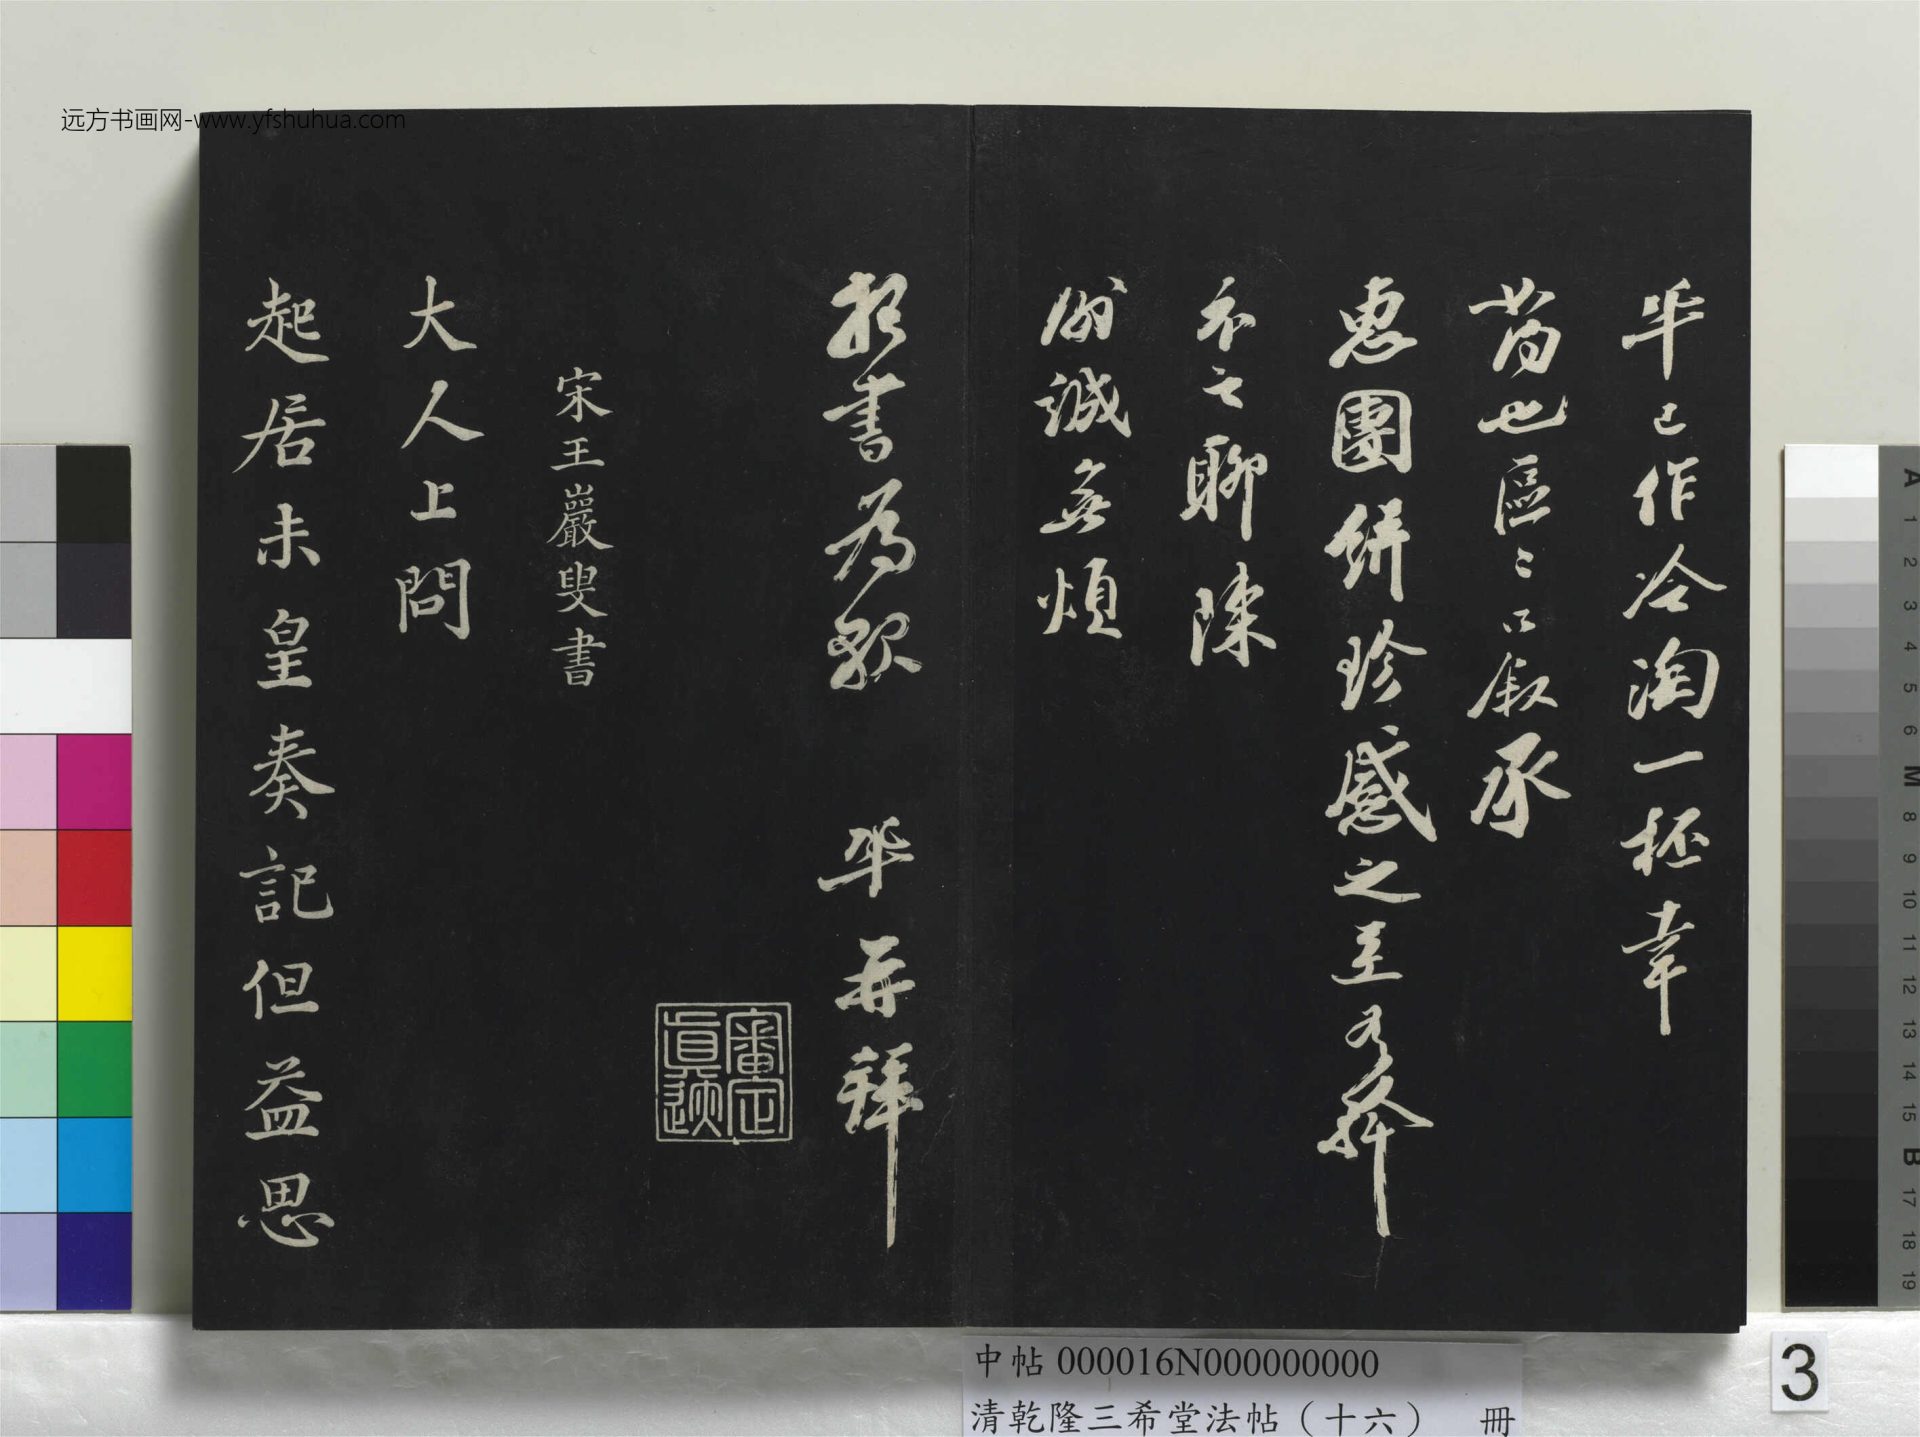 远方书画网-www.yfshuhua.com
华已作冷淘一杯幸
苟也區〻以叙承
惠團餅珍感之至
示之聊陳
誠無煩
報書為
再拜
審定
真迹
宋王巖叟書
大人上問
起居未皇奏記但益思
中帖 000016N000000000
清乾隆三希堂法帖（十六） 冊
3
A
1
2
3
4
5
6
M
8
9
10
11
12
13
14
15
B
17
18
19